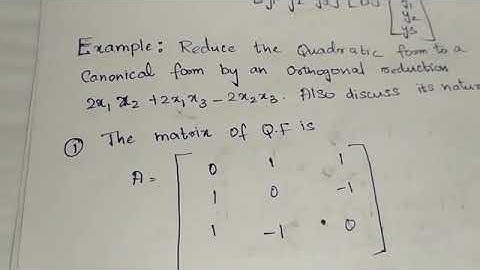 y1
y2
y3
Example: Reduce the Quadratic form to a
Canonical form by an Orthogonal reduction
2x1 x2 + 2x1 x3 - 2x2 x3. Also discuss its natur
① The matrix of Q.F is
A = [ 0 1 1
1 0 -1
1 -1 0 ]